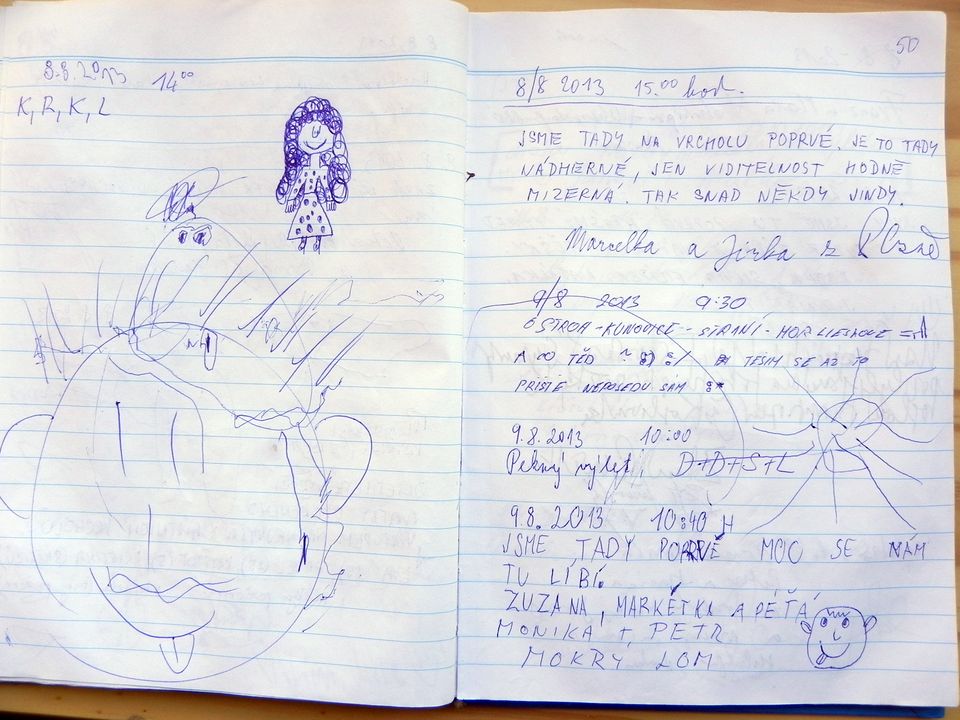 8.8.2013 14⁰⁰
K, R, K, L
50
8/8 2013 15.00 hod.
JSME TADY NA VRCHOLU POPRVÉ. JE TO TADY
NÁDHERNÉ, JEN VIDITELNOST HODNĚ
MIZERNÁ. TAK SNAD NĚKDY JINDY.
Marcelka a Jirka z
9/8 2013 9:30
OSTROH - KUNOVICE - STRÁNÍ -
A DO TĚĎ TESIM SE AŽ TO
PŘÍŠTĚ NEPOJEDU SÁM :*
9.8.2013 10:00
Pekný výlet, D+D+S+L
9.8.2013 10:40 H
JSME TADY POPRVÉ MOC SE NÁM
TU LÍBÍ.
ZUZANA, MARKÉTKA A PÉŤA
MONIKA + PETR
MOKRÝ LOM